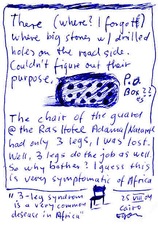 There (where? I forgot!)
where big stones w/ drilled
holes on the road side.
Couldn't figure out their
purpose.
The chair of the guard
@ the Ras Hotel Adama/Nazareth
had only 3 legs, I was lost.
Well, 3 legs do the job as well.
So why bother? I guess this
is very symptomatic of Africa
"3-leg syndrom
is a very common
disease in Africa"
25 VIII 04
Cairo